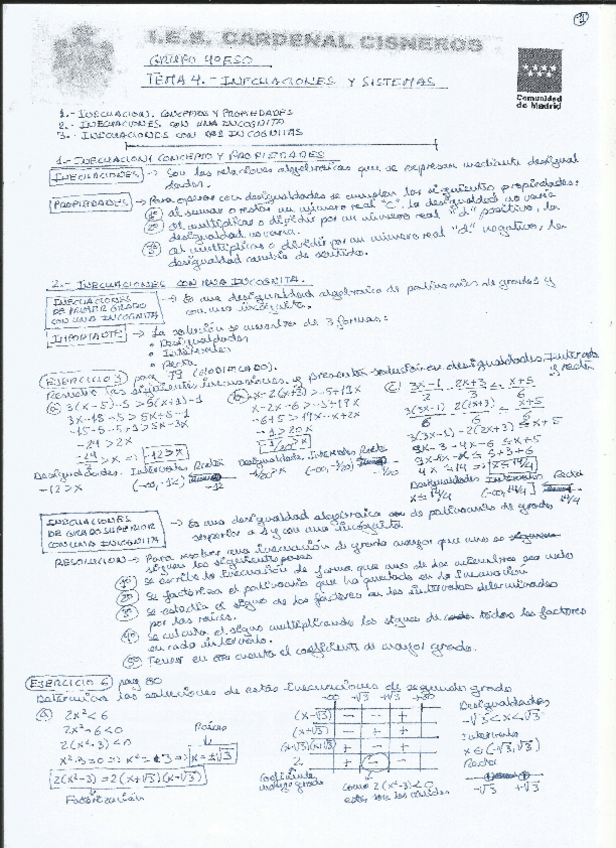 I.E.S. CARDENAL CISNEROS
GRUPO 4º ESO
TEMA 4.- INECUACIONES Y SISTEMAS
Comunidad
de Madrid
1.- INECUACION. CONCEPTOS Y PROPIEDADES
2.- INECUACIONES CON UNA INCOGNITA
3.- INECUACIONES CON DOS INCOGNITAS
1.- INECUACION: CONCEPTO Y PROPIEDADES
INECUACIONES → Son las relaciones algebraicas que se expresan mediante desigual
dades.
PROPIEDADES → Para operar con desigualdades se cumplen las siguientes propiedades:
1º al sumar o restar un número real "c", la desigualdad no varía
2º al multiplicar o dividir por un número real "d" positivo, la
desigualdad no varía.
3º al multiplicar o dividir por un número real "d" negativo, la
desigualdad cambia de sentido.
2.- INECUACIONES CON UNA INCOGNITA.
INECUACIONES
DE PRIMER GRADO
CON UNA INCOGNITA
→ Es una desigualdad algebraica de polinomios de grado 1 y
con una incógnita.
IMPORTANTE → La solución se muestra de 3 formas:
• Desigualdades
• Intervalos
• Recta
EJERCICIO 3 pag 79 (MODIFICADO).
Resuelve las siguientes inecuaciones, y presenta solución en desigualdades, Intervalo
y recta
a) 3(x-5)-5>5(x+1)-1
-24 > 2x
-12 > x
b) x-2(x+3)>-5+19x
x-2x-6>-5+19x
-1 > 20x
-1/20 > x
c) 3x-1/2 - 2x+3/3 ≤ x+5/6
3(3x-1)/6 - 2(2x+3)/6 ≤ x+5/6
3(3x-1)-2(2x+3) ≤ x+5
9x-3-4x-6 ≤ x+5
9x-4x-x ≤ 5+3+6
4x ≤ 14 → x ≤ 14/4
Desigualdades Intervalos Recta
-12 > x (-∞, -12) -12
Desigualdades Intervalos Recta
-1/20 > x (-∞, -1/20) -1/20
Desigualdades Intervalos Recta
x ≤ 14/4 (-∞, 14/4] 14/4
INECUACIONES
DE GRADO SUPERIOR
CON UNA INCOGNITA
→ Es una desigualdad algebraica de polinomios de grado
superior a 1 y con una incógnita
RESOLUCION → Para resolver una inecuación de grado mayor que uno se
siguen los siguientes pasos
1º Se escribe la inecuación de forma que uno de los miembros sea nulo
2º Se factoriza el polinomio que ha quedado en la inecuación
3º Se estudia el signo de los factores en los intervalos determinados
por las raíces.
4º Se calcula el signo multiplicando los signos de todos los factores
en cada intervalo.
5º Tener en cuenta el coeficiente de mayor grado.
EJERCICIO 6 pag 80
Determina las soluciones de estas inecuaciones de segundo grado
a) 2x² < 6
2x²-6 < 0
2(x²-3) < 0
x²-3=0 → x²=3 → x=±√3
Raíces
2(x²-3) = 2(x+√3)(x-√3)
Factorización
-∞ -√3 +√3 +∞
(x-√3) - - +
2 + - +
Coeficiente
mayor grado
como 2(x²-3)<0
Desigualdades
-√3 < x < √3
Intervalo
x ∈ (-√3, √3)
Recta
-√3 +√3